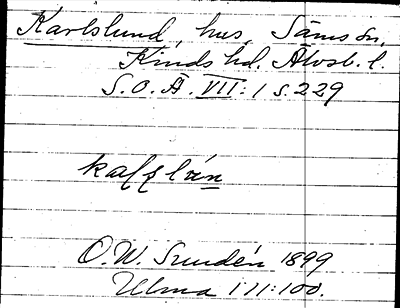 Karlslund, hus, Säms sn,
Kinds hd. Älvsb. l.
S.O.Ä. VII:1 s.229
O.W. Sundén 1899
Ulma 111:100.